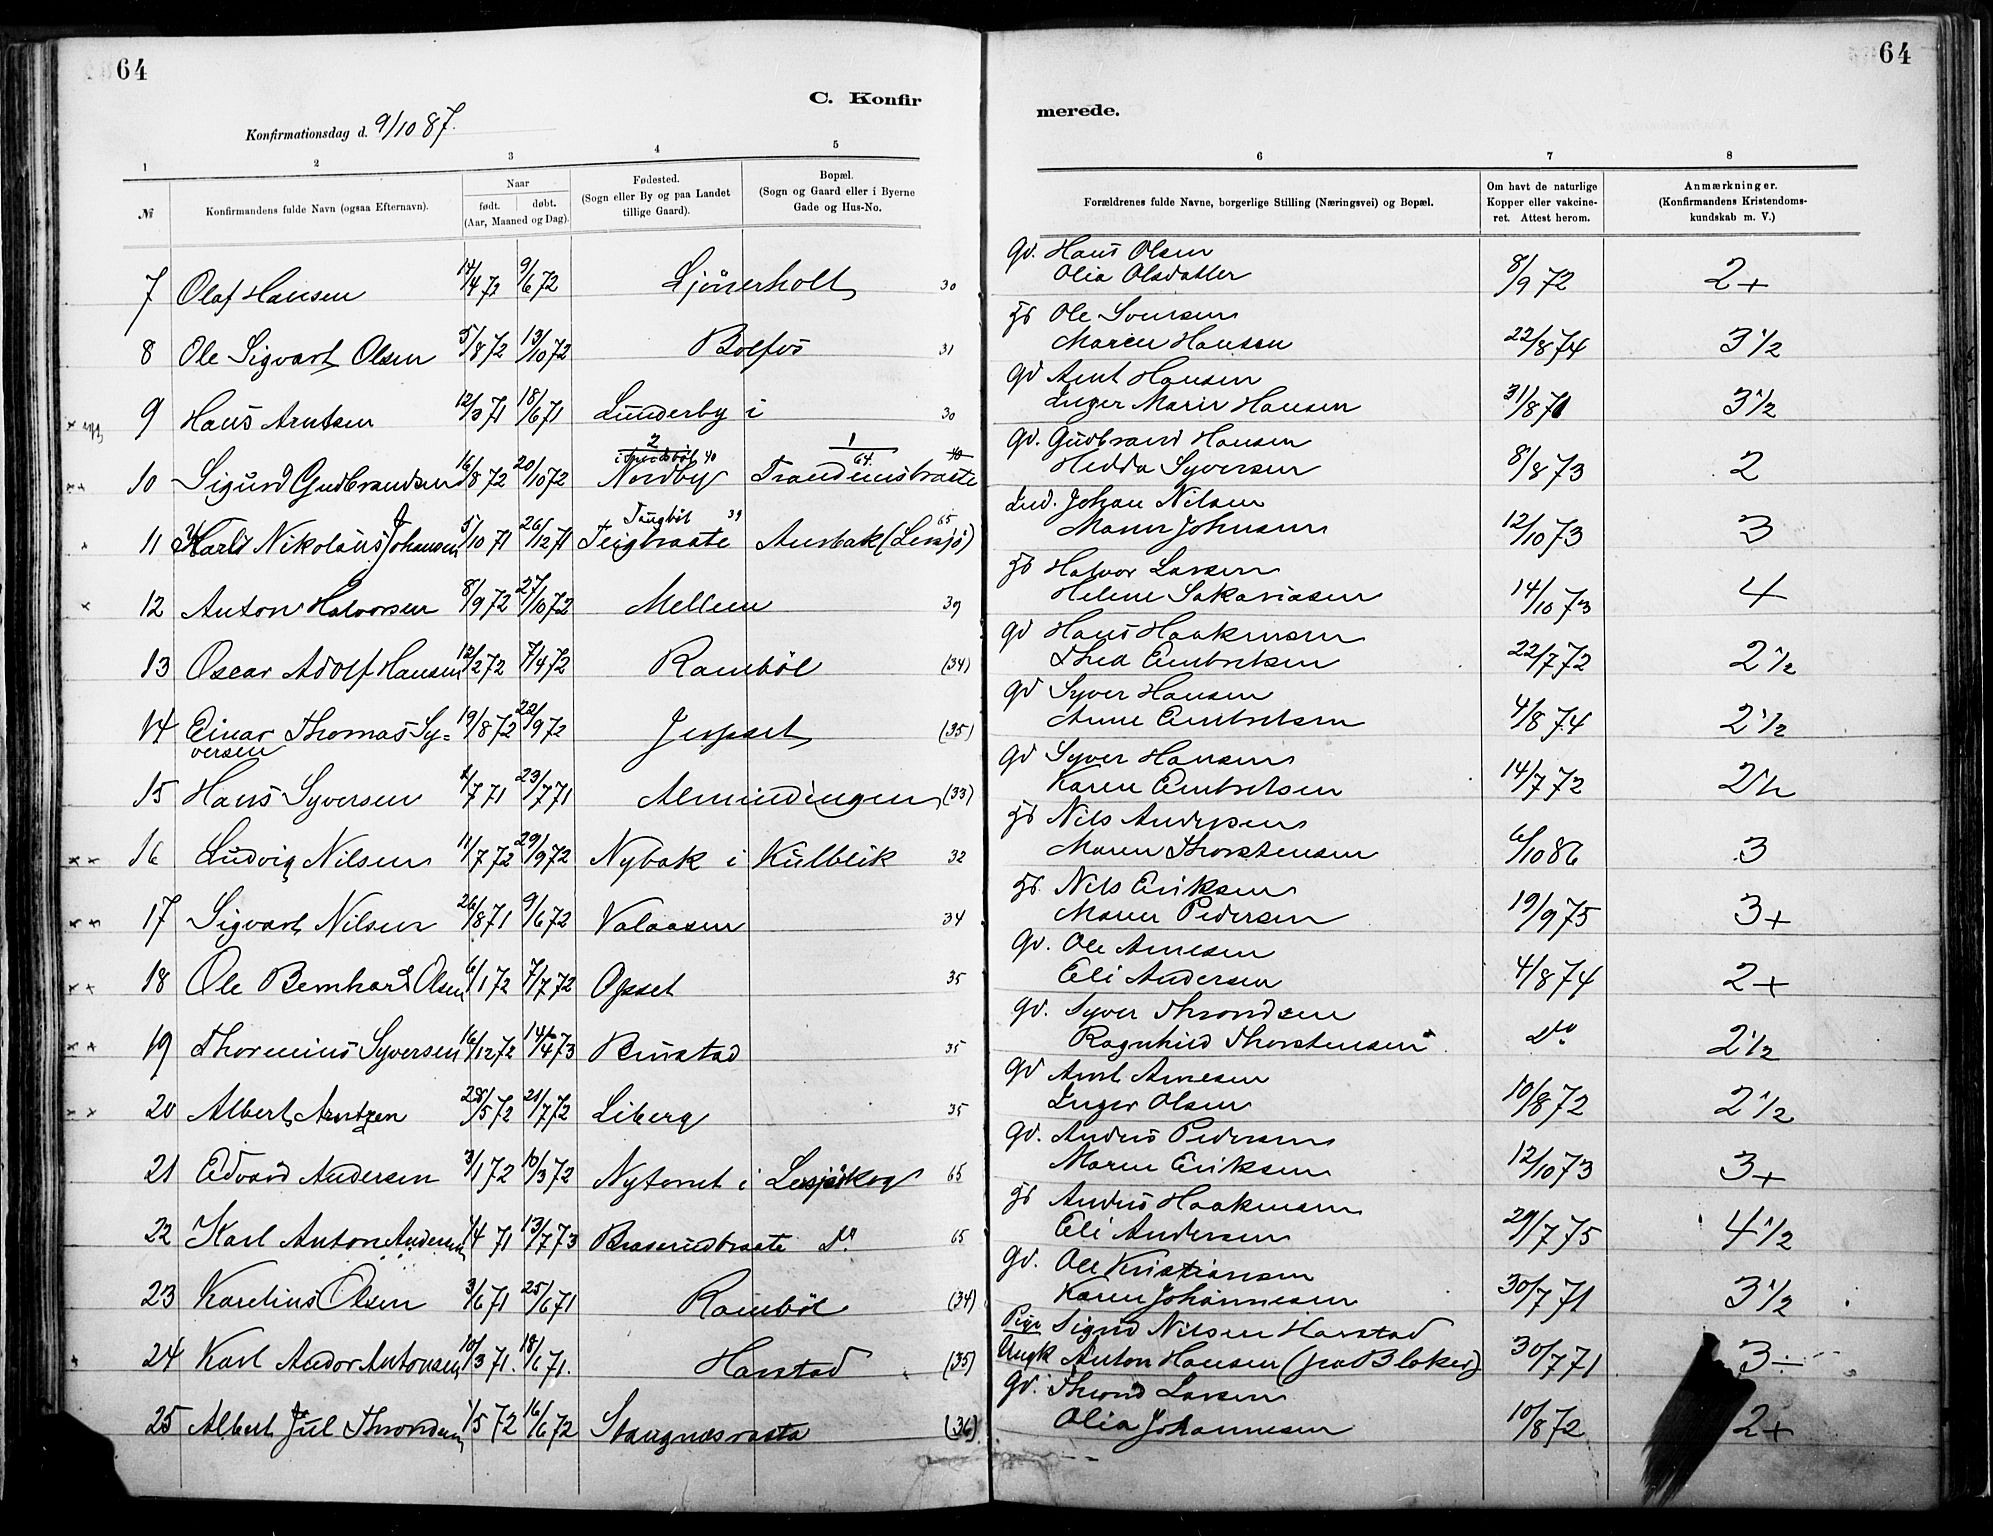 64
64
C. Konfir
merede.
Konfirmationsdag d. 9/10 87.
1 2 3 4 5
6 7 8
№
Konfirmandens fulde Navn (ogsaa Efternavn).
Naar
født. døbt.
(Aar, Maaned og Dag).
Fødested.
(Sogn eller By og paa Landet
tillige Gaard).
Bopæl.
(Sogn og Gaard eller i Byerne
Gade og Hus-No.
Forældrenes fulde Navne, borgerlige Stilling (Næringsvei) og Bopæl.
Om havt de naturlige
Kopper eller vakcine-
ret. Attest herom.
Anmærkninger.
(Konfirmandens Kristendoms-
kundskab m. V.)
7 Olaf Hansen 14/4 72 9/6 72 Ljönerholt 30
Gd. Hans Olsen
Olia Olsdatter 8/9 72 2+
8 Ole Sigvart Olsen 5/8 72 13/10 72 Bolfos 31
Ole Svensen
Maren Hansen 22/8 74 3 1/2
9 Hans Arntsen 12/3 71 18/6 71 Lunderby i 30
Gd Arnt Hansen
Inger Marie Hansen 31/8 71 3 1/2
10 Sigurd Gudbrandsen 16/8 72 20/10 72 Nordby 40 Trandemsbraate 64
Gd. Gudbrand Hansen
Hedda Syversen 8/8 73 2
11 Karld Nikolaus Johansen 5/10 71 26/12 71 Teigbraate 39 Aurbak (Lersjö) 65
Ind. Johan Nilsen
Maren Johnsen 12/10 73 3
12 Anton Halvorsen 8/9 72 27/10 72 Mellem 39
Halvor Larsen
Helene Sakariasen 14/10 73 4
13 Oscar Adolf Hansen 12/2 72 7/4 72 Ramböl (34)
Gd Hans Haakensen
Thea Embretsen 22/7 72 2 1/2
14 Einar Thomas Sy=
versen 19/8 72 22/9 72 Jeppset (35)
Gd Syver Hansen
Anne Embretsen 4/8 74 2 1/2
15 Hans Syversen 2/7 71 23/7 71 Almindingen (33)
Gd Syver Hansen
Karen Embretsen 14/7 72 2 1/2
16 Ludvig Nilsen 11/7 72 29/9 72 Nybak i Kulblik 32
Nils Andersen
Maren Thorstensen 6/10 86 3
17 Sigvart Nilsen 26/8 71 9/6 72 Valaasen 34
Nils Eriksen
Maren Pedersen 19/9 75 3+
18 Ole Bernhard Olsen 6/1 72 7/7 72 Opset 35
Gd. Ole Arnesen
Eli Andersen 4/8 74 2+
19 Thorenius Syversen 16/12 72 14/4 73 Brustad 35
Gd. Syver Throndsen
Ragnhild Thorstensen Do 2 1/2
20 Albert Arntzen 28/5 72 21/7 72 Liberg 35
Gd Arnt Arnesen
Inger Olsen 10/8 72 2 1/2
21 Edvard Andersen 3/1 72 10/3 72 Nytorvet i Lersjöskog 65
Gd. Anders Pedersen
Maren Eriksen 12/10 73 3+
22 Karl Anton Andersen 1/4 71 13/7 73 Braserudbraate Do 65
Anders Haakensen
Eli Andersen 29/7 75 4 1/2
23 Karelius Olsen 3/6 71 25/6 71 Ramböl (34)
Gd. Ole Kristiansen
Karen Johannesen 30/7 71 3 1/2
24 Karl Andor Antonsen 10/3 71. 18/6 71. Harstad (35)
Pige Sigrid Nilsen Harstad
Ungk Anton Hansen (fra Blaker) 30/7 71 3÷
25 Albert Jul Throndsen 1/5 72 16/6 72 Stangnæsrasta (36)
Gd. Thrond Larsen
Olia Johannesen 10/8 72 2+